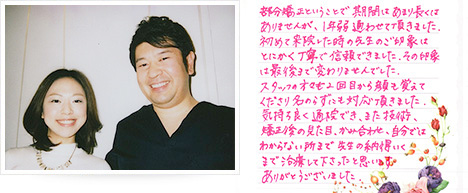 部分矯正ということで期間はあまり長くは
ありませんが、1年弱通わせて頂きました。
初めて来院した時の先生のご印象は
とにかく丁寧で信頼できました。その印象
は最後まで変わりませんでした。
スタッフの方も2回目から顔も覚えて
くださり名のらずとも対応頂きました。
気持ち良く通院でき、また技術、
矯正後の見た目、かみ合わせと、自分では
わからない所まで先生の納得いく
まで治療して下さったと思います。
ありがとうございました。